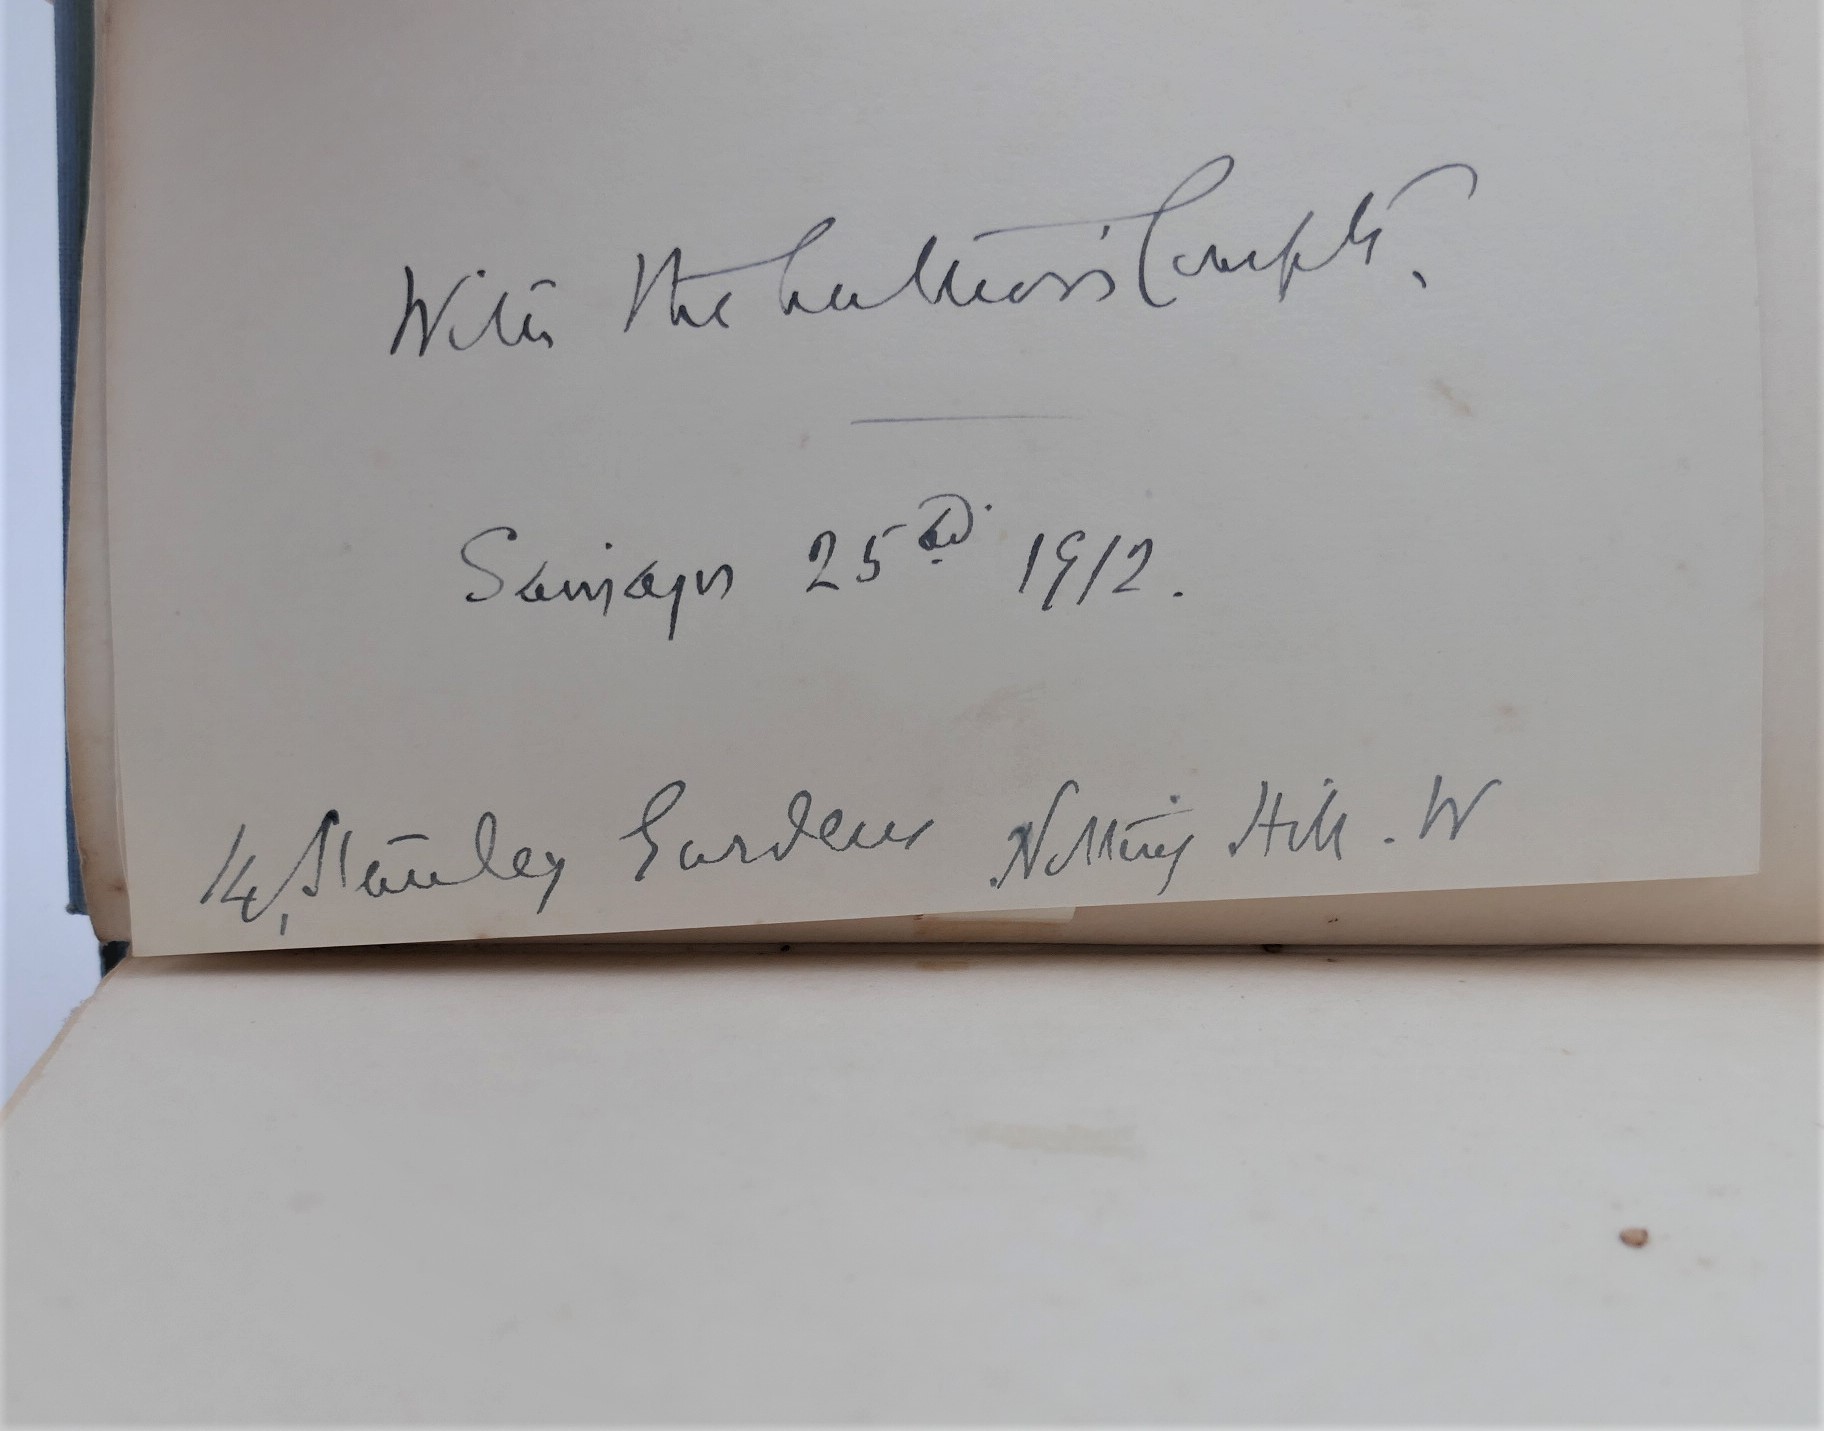 With the Author's Compts.
25th 1912.
14, Stanley Gardens Notting Hill. W